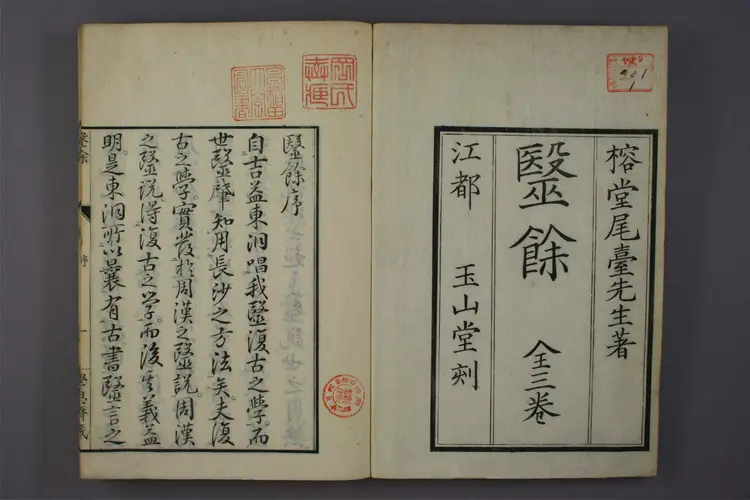 301
1
榕堂尾臺先生著
毉餘 全三卷
江都 玉山堂刻
毉餘序
自吉益東洞唱我毉復古之學。而
世毉肇知用長沙之方法矣。夫復
古之學實發於周漢之毉說。周漢
之毉說。得復古之學。而後其義益
明。是東洞所以曩有古書毉言之
毉餘 序 一